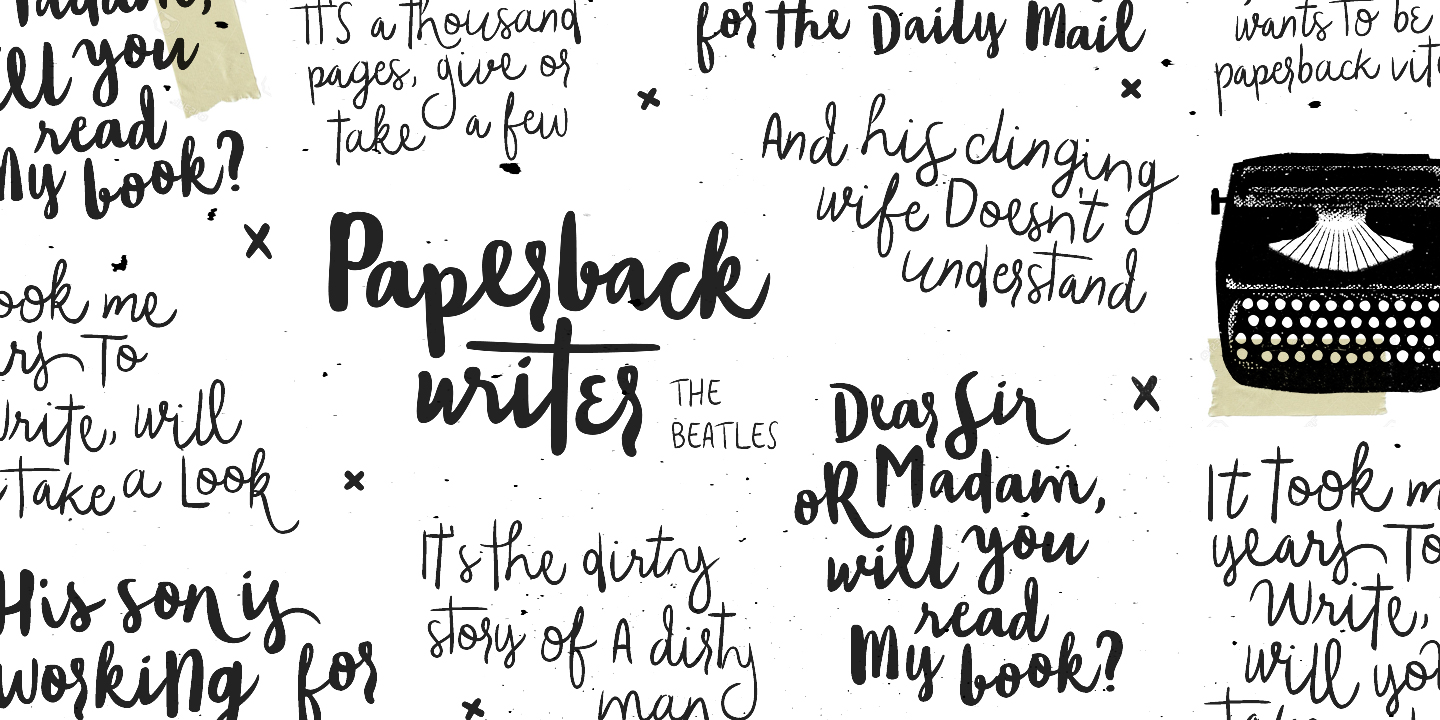 adam,
ill you
read
My book?
It's a thousand
pages, give or
take a few
for the Daily Mail
wants To be
paperback
And his clinging
wife Doesn't
understand
Paperback
writer
THE
BEATLES
ook me
ars To
Write, will
Take a Look
Dear Sir
oR Madam,
will you
read
My book?
His son is
working for
It's the dirty
story of A dirty
man
It Took m
years To
Write,
will you